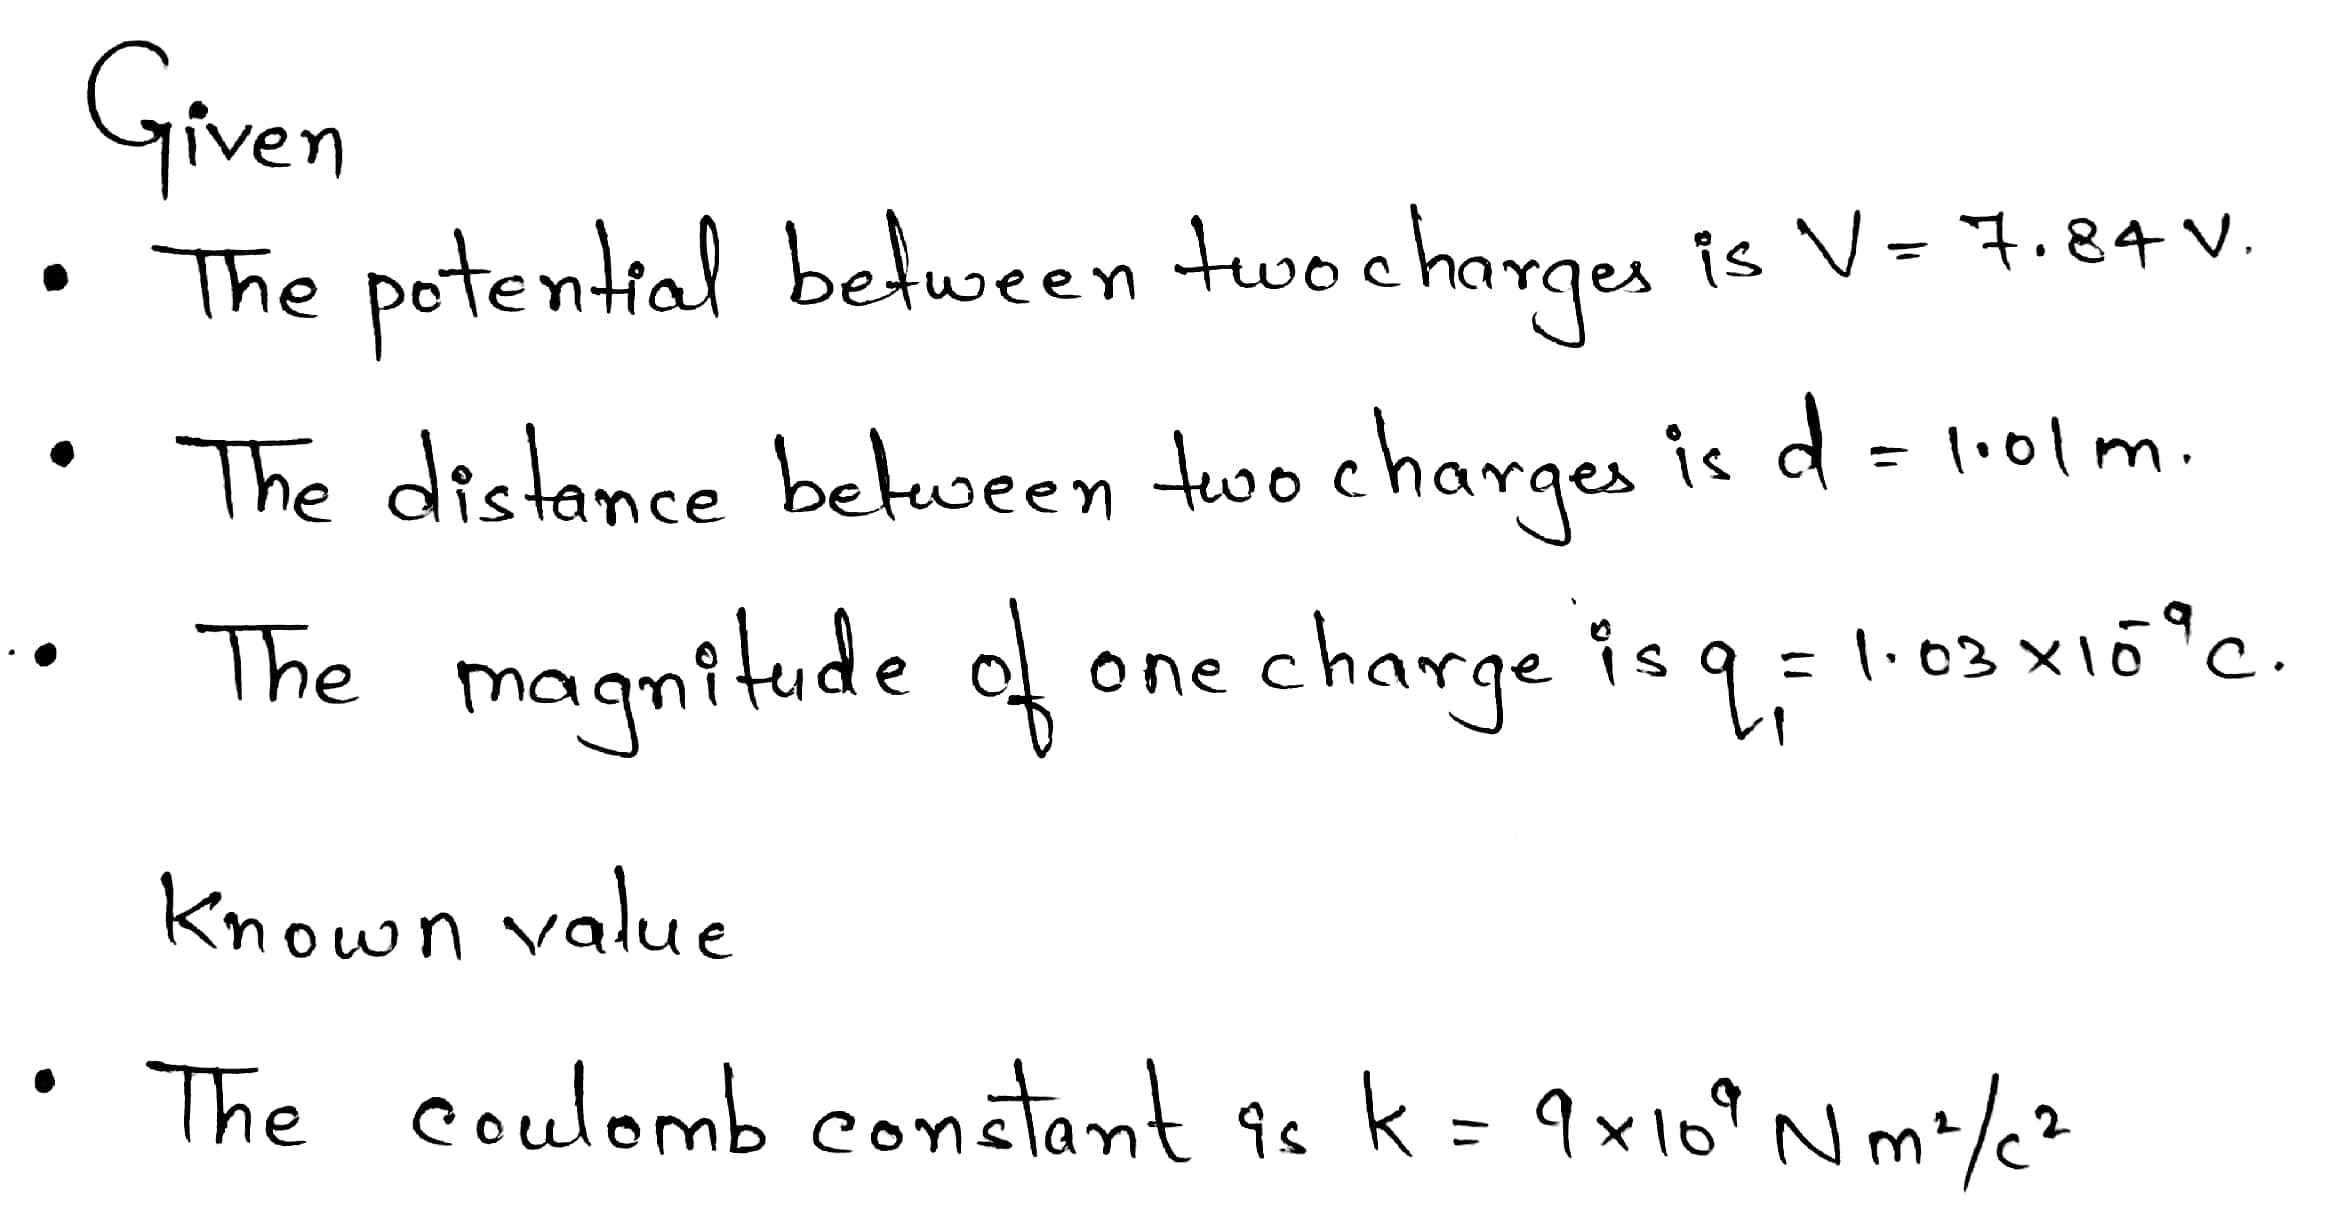 Given
• The potential between two charges is V = 7.84 V.
• The distance between two charges is d = 1.01 m.
• The magnitude of one charge is q₁ = 1.03 × 10⁻⁹ C.
Known value
• The coulomb constant is k = 9 × 10⁹ N m²/C²